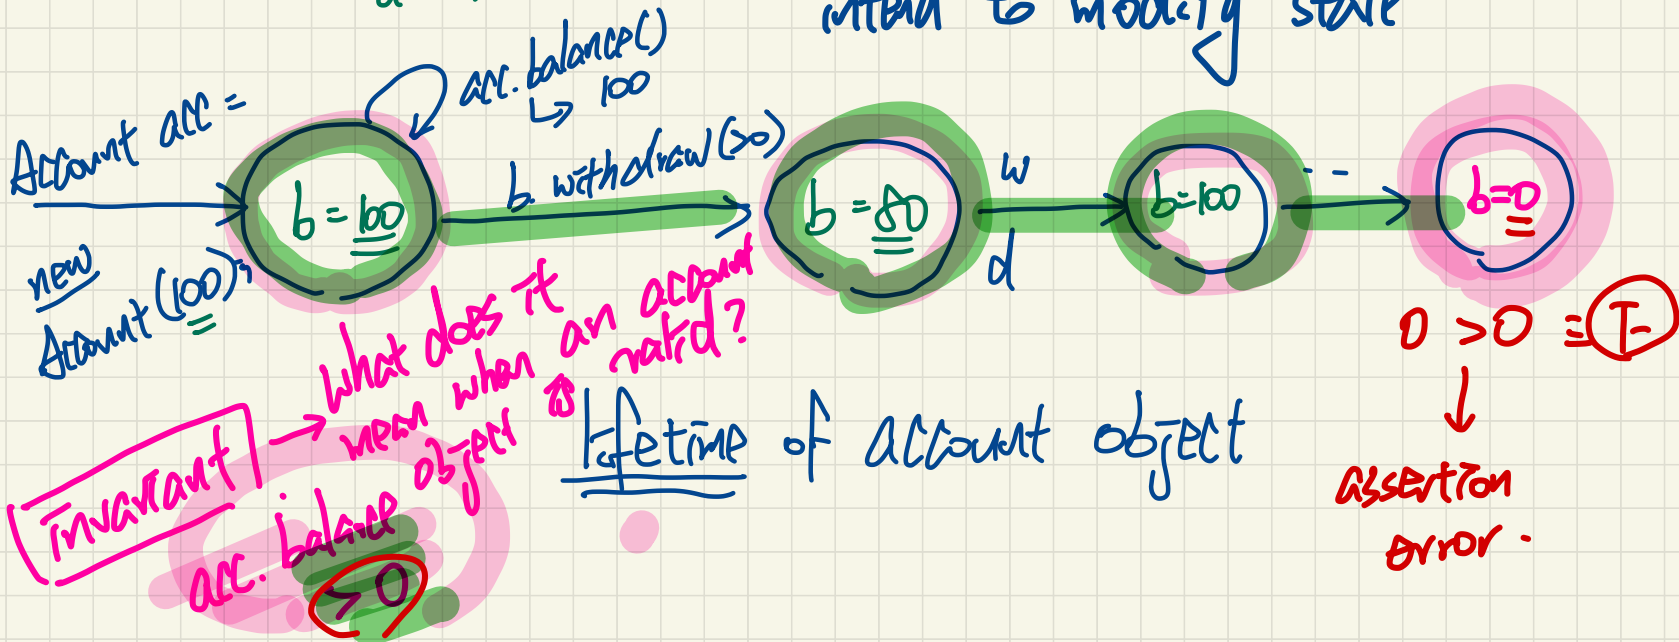 intend to modify state
Account acc =
new
Account(100)
acc.balance()
↳ 100
b = 100
b. withdraw(20)
b = 80
w
d
b=100
...
b=0
0 > 0 ≡ F
↓
assertion
error.
Invariant → What does it
mean when an account
object is valid?
acc. balance
> 0
Lifetime of account object